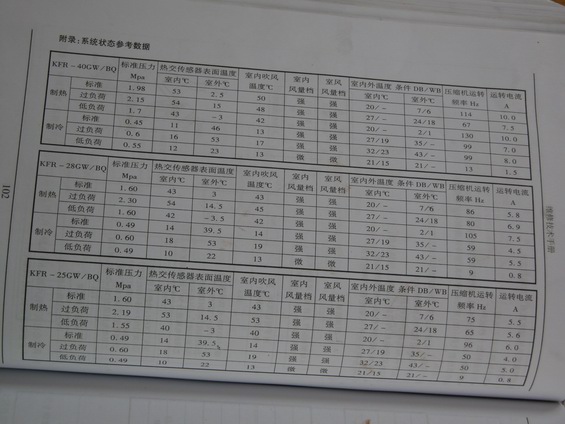 附录：系统状态参考数据
KFR－40GW/BQ 标准压力 Mpa 热交传感器表面温度 室内℃ 室外℃ 室内吹风温度℃ 室内风量档 室风风量档 室内外温度 条件 DB/WB 室内℃ 室外℃ 压缩机运转频率 Hz 运转电流 A
制热 标准 1.98 53 2.5 50 强 强 20/－ 7/6 114 10.0
过负荷 2.15 54 15 48 强 强 27/－ 24/18 67 7.5
低负荷 1.7 43 －3 42 强 强 20/－ 2/1 130 10.0
制冷 标准 0.45 11 46 13 强 强 27/19 35/－ 99 7.0
过负荷 0.6 16 53 17 强 强 32/23 43/－ 99 8.0
低负荷 0.55 12 23 13 微 微 21/15 21/－ 13 1.5
KFR－28GW/BQ 标准压力 Mpa 热交传感器表面温度 室内℃ 室外℃ 室内吹风温度℃ 室内风量档 室风风量档 室内外温度 条件 DB/WB 室内℃ 室外℃ 压缩机运转频率 Hz 运转电流 A
制热 标准 1.60 43 3 42 强 强 20/－ 7/6 86 5.8
过负荷 2.30 54 14.5 45 强 强 27/－ 24/18 80 6.9
低负荷 1.60 42 －3.5 42 强 强 20/－ 2/1 105 7.5
制冷 标准 0.49 14 39.5 14 强 强 27/19 35/－ 59 4.5
过负荷 0.60 18 53 19 强 强 32/23 43/－ 59 5.5
低负荷 0.49 10 22 13 微 微 21/15 21/－ 9 0.8
KFR－25GW/BQ 标准压力 Mpa 热交传感器表面温度 室内℃ 室外℃ 室内吹风温度℃ 室内风量档 室风风量档 室内外温度 条件 DB/WB 室内℃ 室外℃ 压缩机运转频率 Hz 运转电流 A
制热 标准 1.60 43 3 40 强 强 20/－ 7/6 75 5.5
过负荷 2.19 53 14.5 53 强 强 27/－ 24/18 65 5.6
低负荷 1.55 40 －3 40 强 强 20/－ 2/1 96 6.0
制冷 标准 0.49 14 39.5 14 强 强 27/19 35/－ 50 4.0
过负荷 0.60 18 53 19 强 强 32/23 43/－ 50 5.0
低负荷 0.49 10 22 13 微 微 21/15 21/－ 9 0.8
102
维修技术手册